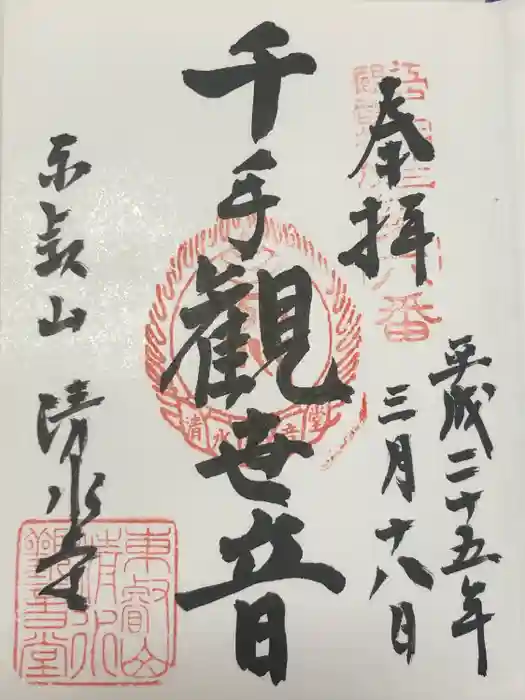 奉拝
平成二十五年
三月十八日
千手観世音
東叡山 清水堂
清水観音堂
東叡山
清水
観音堂